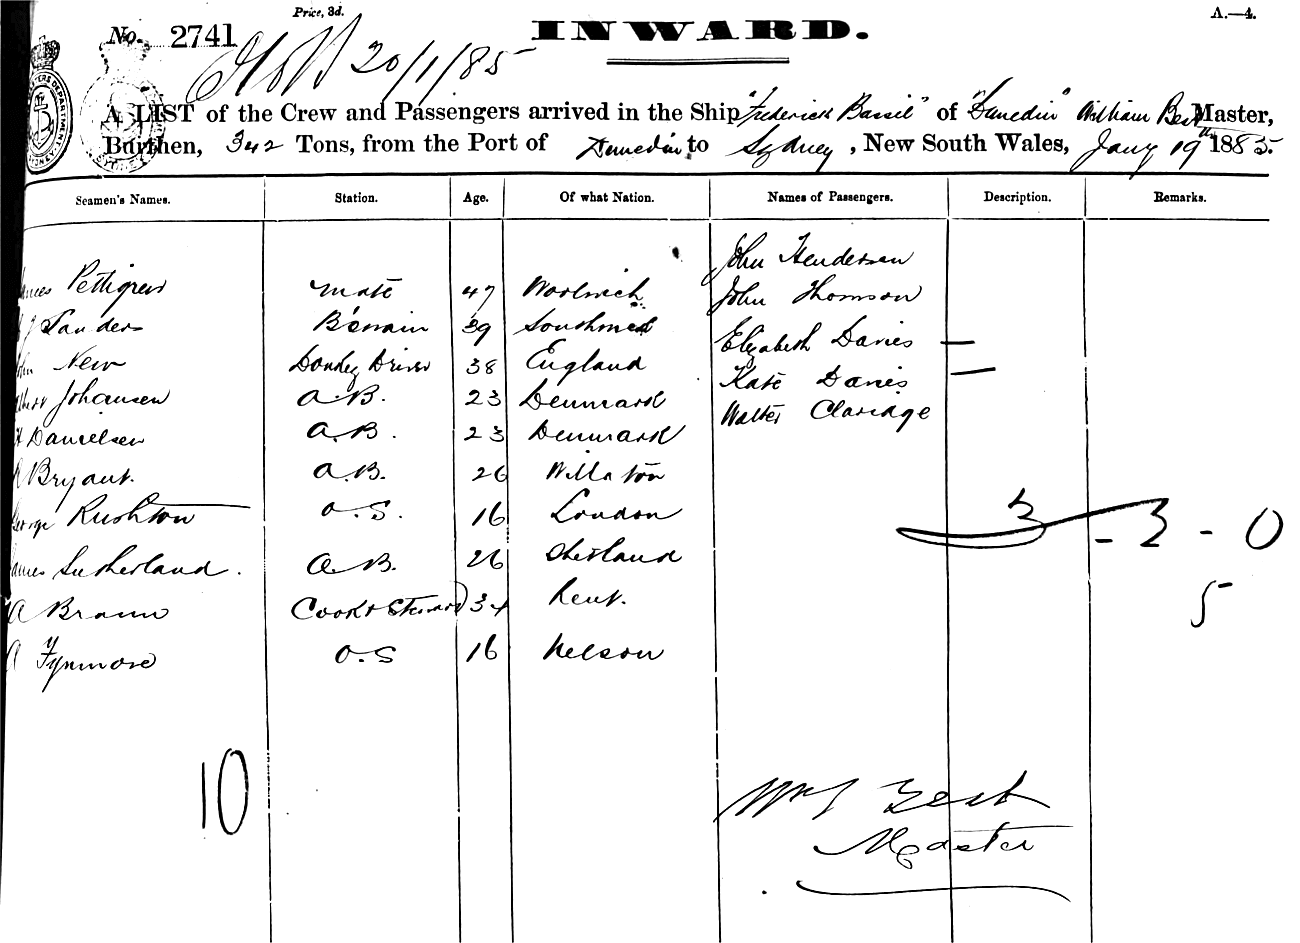 Price, 3d.
A.—4.
No. 2741
INWARD.
20/1/85
A LIST of the Crew and Passengers arrived in the Ship "Frederick Bassil" of "Dunedin" William Best Master,
Burthen, 342 Tons, from the Port of Dunedin to Sydney, New South Wales, Jany 19th 1885.
Seamen's Names. Station. Age. Of what Nation. Names of Passengers. Description. Remarks.
John Henderson
Pettigrew Mate 47 Woolwich John Thomson
Sanders B'swain 39 Elizabeth Davies —
New Donkey Driver 38 England Kate Davies —
Johansen A.B. 23 Denmark Walter Claridge
Danielsen A.B. 23 Denmark
Bryant. A.B. 26
George Rushton O.S. 16 London 3 - 3 - 0
James Sutherland. A.B. 26 Shetland
A Braun Cook & Steward 34 Kent. 5
A Fynmore O.S 16 Nelson
10
Wm J Best
Master